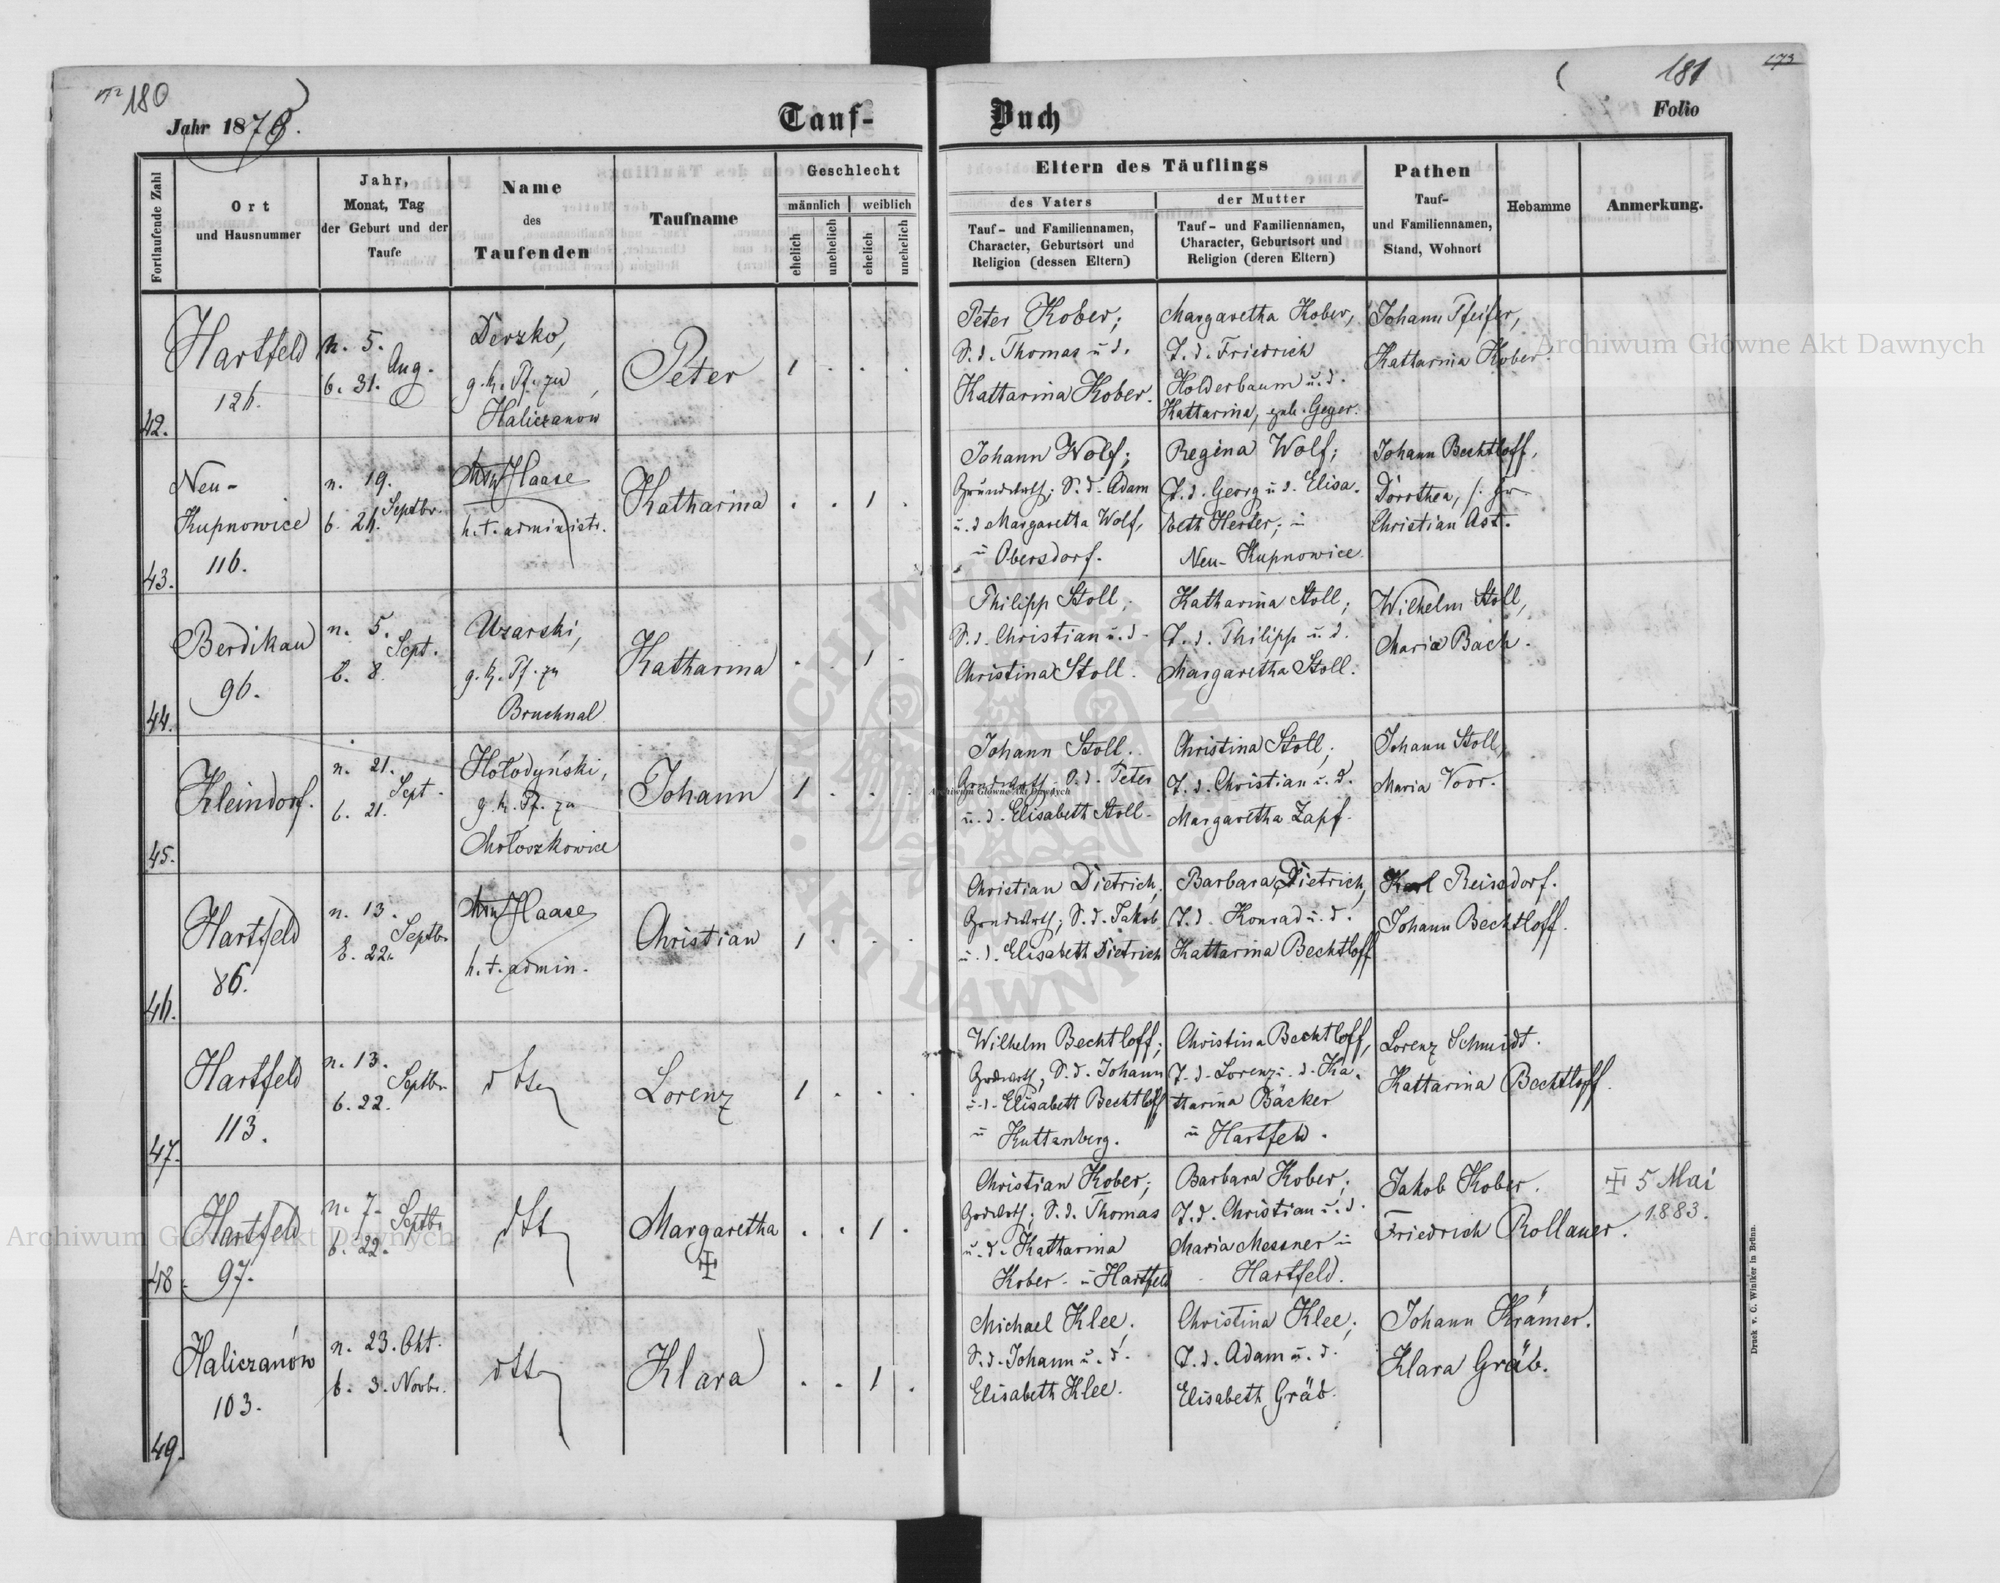 180
181
173
Jahr 1878.
Tauf-
Buch
Folio
Fortlaufende Zahl
Ort
und Hausnummer
Jahr,
Monat, Tag
der Geburt und der
Taufe
Name
des
Taufenden
Taufname
Geschlecht
männlich
weiblich
ehelich
unehelich
ehelich
unehelich
Eltern des Täuflings
des Vaters
Tauf- und Familiennamen,
Character, Geburtsort und
Religion (dessen Eltern)
der Mutter
Tauf- und Familiennamen,
Character, Geburtsort und
Religion (deren Eltern)
Pathen
Tauf-
und Familiennamen,
Stand, Wohnort
Hebamme
Anmerkung.
42.
Hartfeld
126.
n. 5.
Aug.
b. 31.
Derzko,
g. k. Pf. zu
Haliczanow
Peter
1 . . .
Peter Kober;
S. d. Thomas u. d.
Kattarina Kober.
Margaretha Kober,
T. d. Friedrich
Holderbaum u. d.
Kattarina, geb. Geyer.
Johann Pfeifer,
Kattarina Kober.
43.
Neu-
Kupnowice
116.
n. 19.
Septbr.
b. 24.
Haase
h. t. administr.
Katharina
. . 1 .
Johann Wolf;
Grundwirth; S. d. Adam
u. d. Margaretta Wolf,
Obersdorf.
Regina Wolf;
T. d. Georg u. d. Elisa-
beth Herter;
Neu-Kupnowice
Johann Bechtloff,
Dorothea,
Christian Ast.
44.
Berdikau
96.
n. 5.
Sept.
b. 8.
Uzarski,
g. k. Pf. zu
Bruchnal
Katharina
. . 1 .
Philipp Stoll,
S. d. Christian u. d.
Christina Stoll.
Katharina Stoll;
T. d. Philipp u. d.
Margaretha Stoll.
Wilhelm Stoll,
Maria Bach.
45.
Kleindorf.
n. 21.
Sept.
b. 21.
Hołodyński,
g. k. Pf. zu
Mołoszkowice
Johann
1 . . .
Johann Stoll.
Grndwrth; S. d. Peter
u. d. Elisabeth Stoll.
Christina Stoll;
T. d. Christian u. d.
Margaretha Zapf.
Johann Stoll,
Maria Voor.
46.
Hartfeld
86.
n. 13.
Septbr.
b. 22.
Haase
h. t. admin.
Christian
1 . . .
Christian Dietrich;
Grndwrth; S. d. Jakob
u. d. Elisabeth Dietrich
Barbara Dietrich,
T. d. Konrad u. d.
Kattarina Bechtloff
Karl Reissdorf.
Johann Bechtloff.
47.
Hartfeld
113.
n. 13.
Septbr.
b. 22.
dtto
Lorenz
1 . . .
Wilhelm Bechtloff;
Grdwrth, S. d. Johann
u. d. Elisabett Bechtloff
Kuttenberg.
Christina Bechtloff,
T. d. Lorenz u. d. Ka-
ttarina Bäcker
Hartfeld.
Lorenz Schmidt.
Kattarina Bechtloff.
48.
Hartfeld
97.
n. 7.
Septbr.
b. 22.
dtto
Margaretha
. . 1 .
Christian Kober;
Grdwrth; S. d. Thomas
u. d. Katharina
Kober Hartfeld
Barbara Kober;
T. d. Christian u. d.
Maria Messner
Hartfeld.
Jakob Kober.
Friedrich Rollauer.
5 Mai
1883.
49.
Haliczanów
103.
n. 23. Okt.
b. 3. Novbr.
dtto
Klara
. . 1 .
Michael Klee;
S. d. Johann u. d.
Elisabeth Klee.
Christina Klee;
T. d. Adam u. d.
Elisabeth Gräb.
Johann Krämer.
Klara Gräb.
Druck v. C. Winiker in Brünn.
Archiwum Główne Akt Dawnych
Archiwum Główne Akt Dawnych
Archiwum Główne Akt Dawnych